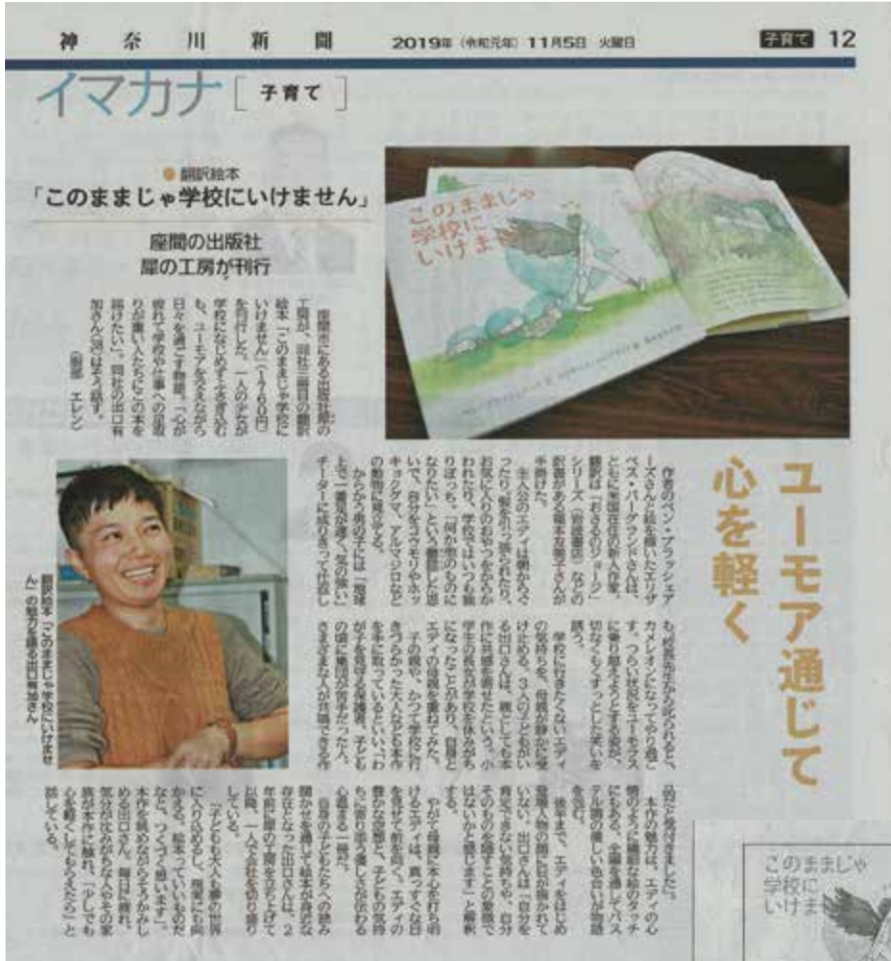 神奈川新聞
2019年(令和元年)11月5日 火曜日
子育て 12
イマカナ[子育て]
● 翻訳絵本
「このままじゃ学校にいけません」
座間の出版社
犀の工房が刊行
ユーモア通じて
心を軽く
座間市にある出版社犀の
工房が、同社三冊目の翻訳
絵本「このままじゃ学校に
いけません」(1760円)
を刊行した。一人の少女が
学校になじめずふさぎ込む
も、ユーモアを交えながら
日々を過ごす物語。「心が
疲れて学校や仕事への足取
りが重い人たちにこの本を
届けたい」。同社の出口有
加さん(38)はそう話す。
(服部 エレン)
作者のベン・ブラッシェア
ーズさんと絵を描いたエリザ
ベス・バーグランドさんは、
ともに米国在住の新人作家。
翻訳は「おさるのジョージ」
シリーズ(岩波書店)などの
訳書がある福本友美子さんが
手掛けた。
主人公のエディは朝からぐ
ったり。髪を引っ張られたり、
お気に入りのおやつをからか
われたり、学校ではいつも独
りぼっち。「何か他のものに
なりたい」という鬱屈した思
いで、自分をコウモリやホッ
キョクグマ、アルマジロなど
の動物に見立てる。
からかう男の子には「地球
上で一番足が速く、気の強い」
チーターに成りきって仕返し
も。校長先生から叱られると、
カメレオンになってやり過ご
す。つらい状況をユーモラス
に乗り越えようとする姿が、
切なくもくすっとした笑いを
誘う。
学校に行きたくないエディ
の気持ちを、母親が静かに受
け止める。3人の子どもがい
る出口さんは、親としても本
作に共感を寄せたという。小
学生の長女が学校を休みがち
になったことがあり、自身と
エディの母親を重ねてみた。
子の親や、かつて学校に行
きづらかった大人なども本作
を手に取っているといい、「わ
が子を見守る保護者、子ども
の頃に集団が苦手だった人、
さまざまな人が共感できる作
品だと気付きました」。
本作の魅力は、エディの心
情のように繊細な絵のタッチ
にもある。全編を通してパス
テル調の優しい色合いが物語
を包む。
後半まで、エディをはじめ
登場人物の顔に目が描かれて
いない。出口さんは「自分を
肯定できない気持ちや、自分
そのものを隠すことの象徴で
はないかと感じます」と解釈
する。
やがて母親に本心を打ち明
けるエディは、真っすぐな目
を見せて前を向く。エディの
豊かな空想と、子どもの気持
ちに寄り添う優しさが伝わる
心温まる一冊だ。
自身の子どもたちへの読み
聞かせを通して絵本が身近な
存在となった出口さんは、2
年前に犀の工房を立ち上げて
以降、一人で会社を切り盛り
している。
「子どもも大人も夢の世界
に入り込めるし、現実にも向
かえる。絵本っていいものだ
なと、つくづく思います」。
本作を眺めながらそうかみし
める出口さん。毎日に疲れ、
気分が沈みがちな人やその家
族が本作に触れ、「少しでも
心を軽くしてもらえたら」と
話している。
翻訳絵本「このままじゃ学校にいけませ
ん」の魅力を語る出口有加さん
このままじゃ
学校に
いけま
このままじゃ
学校に
いけま